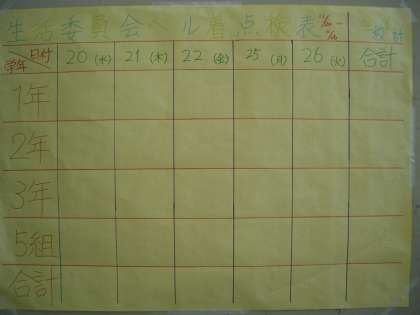 生活委員会ベル着点検表 11/20〜11/26
日付 学年 20(水) 21(木) 22(金) 25(月) 26(火) 合計
1年
2年
3年
5組
合計